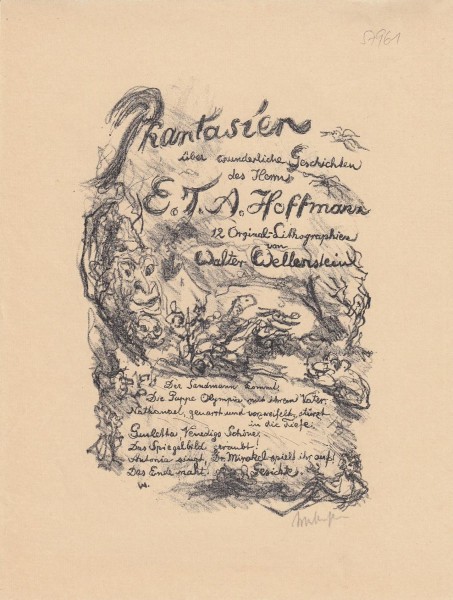 57961
Phantasien
über wunderliche Geschichten
des Herrn
E.T.A. Hoffmann
12 Orginal-Lithographien
von
Walter Wellenstein
Der Sandmann kommt,
Die Puppe Olympia mit ihrem Vater,
Nathanael, genarrt und verzweifelt, stürzt
in die Tiefe.
Giulietta Venedigs Schöne,
Das Spiegelbild geraubt,
Antonia singt, Dr. Mirakel spielt ihr auf,
Das Ende naht, Gesichte.